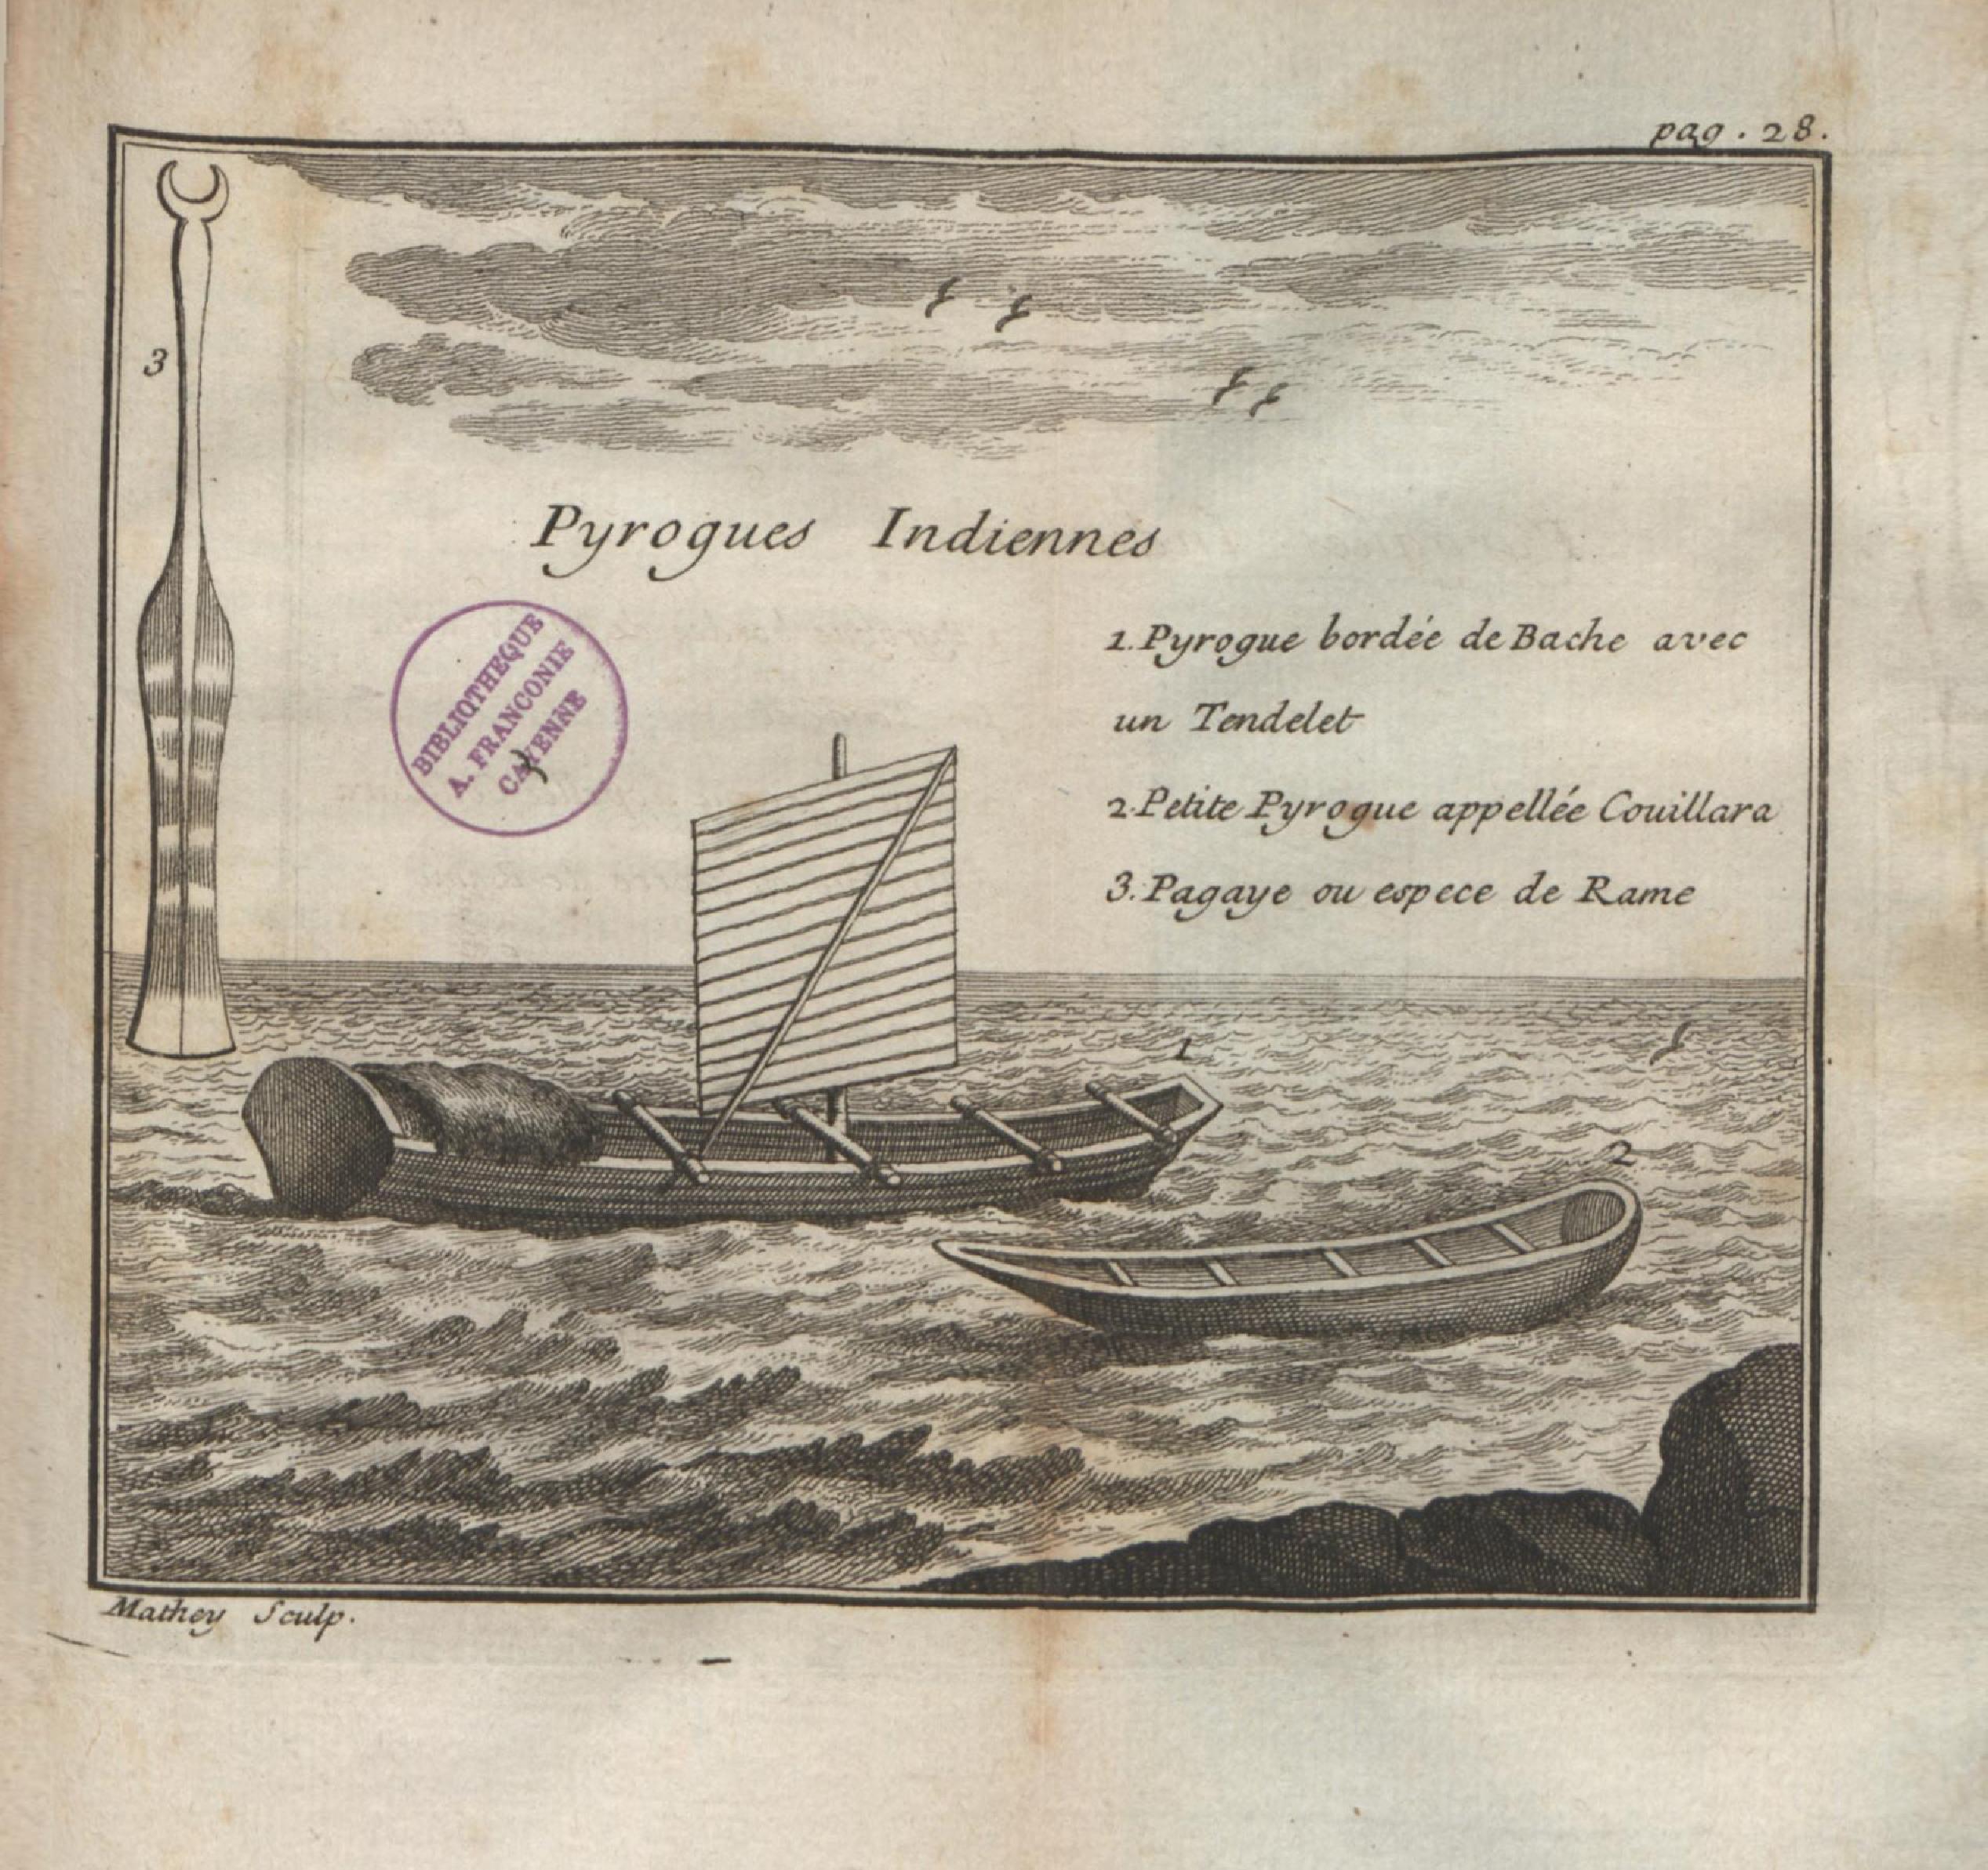 pag. 28.
3
Pyrogues Indiennes
BIBLIOTHEQUE
A. FRANCONIE
CAYENNE
1. Pyrogue bordée de Bache avec
un Tendelet
2. Petite Pyrogue appellée Couillara
3. Pagaye ou espece de Rame
1
2
Mathey Sculp.